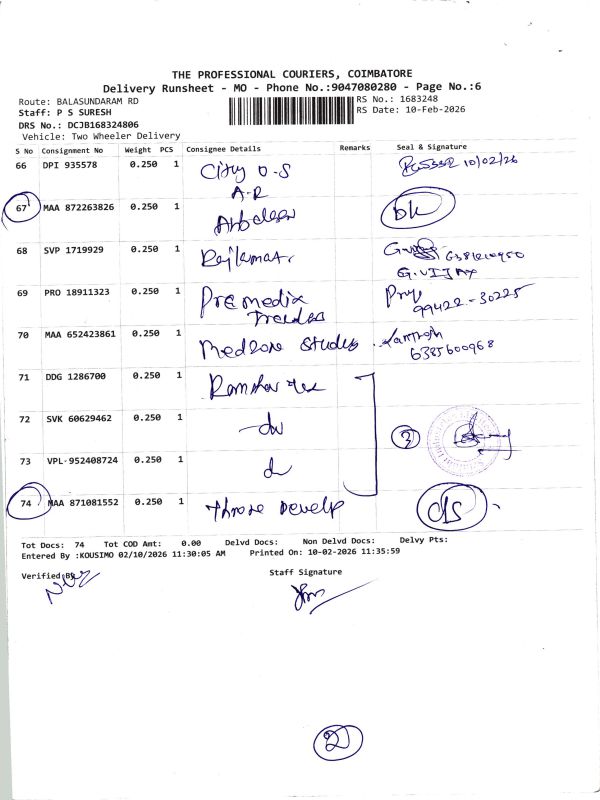 THE PROFESSIONAL COURIERS, COIMBATORE
Delivery Runsheet - MO - Phone No.:9047080280 - Page No.:6
Route: BALASUNDARAM RD
RS No.: 1683248
Staff: P S SURESH
RS Date: 10-Feb-2026
DRS No.: DCJB168324806
Vehicle: Two Wheeler Delivery
S No Consignment No Weight PCS Consignee Details Remarks Seal & Signature
66 DPI 935578 0.250 1 City O.S 10/02/26
A.R
67 MAA 872263826 0.250 1
68 SVP 1719929 0.250 1 Rajkumar. 6381210950
G.VIJAY
69 PRO 18911323 0.250 1 Premedix Priya
Trendes 99422-30225
70 MAA 652423861 0.250 1 Medzone Studies
6385600968
71 DDG 1286700 0.250 1
72 SVK 60629462 0.250 1 3
73 VPL 952408724 0.250 1
74 MAA 871081552 0.250 1 Throne Develp
Tot Docs: 74 Tot COD Amt: 0.00 Delvd Docs: Non Delvd Docs: Delvy Pts:
Entered By :KOUSIMO 02/10/2026 11:30:05 AM Printed On: 10-02-2026 11:35:59
Verified By
Staff Signature
2